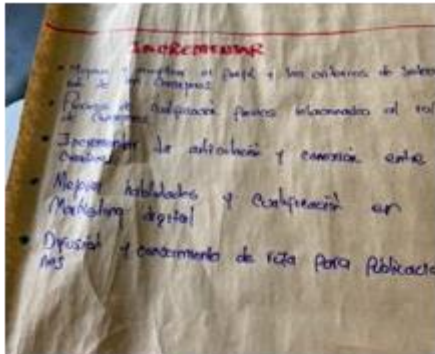 INCREMENTAR
y ampliar el perfil y los criterios de
de los Consejeros
Procesos de Cualificación relacionados al rol
de Consejeros
Incrementar la articulación y conexión entre
Creativos
Mejorar habilidades y Cualificación en
Marketing digital
Difusión y conocimiento de ruta para Publicacio
nes